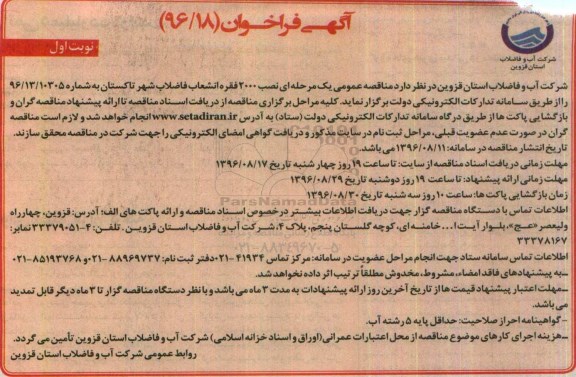 آگهی فراخوان (۹۶/۱۸)
نوبت اول
شرکت آب و فاضلاب
استان قزوین
شرکت آب و فاضلاب استان قزوین در نظر دارد مناقصه عمومی یک مرحله ای نصب ۲۰۰۰ فقره انشعاب فاضلاب شهر تاکستان به شماره ۹۶/۱۳/۱۰۳۰۵
را از طریق سامانه تدارکات الکترونیکی دولت برگزار نماید. کلیه مراحل برگزاری مناقصه از دریافت اسناد مناقصه تا ارائه پیشنهاد مناقصه گران و
بازگشایی پاکت ها از طریق درگاه سامانه تدارکات الکترونیکی دولت (ستاد) به آدرس www.setadiran.ir انجام خواهد شد و لازم است مناقصه
گران در صورت عدم عضویت قبلی، مراحل ثبت نام در سایت مذکور و دریافت گواهی امضای الکترونیکی را جهت شرکت در مناقصه محقق سازند.
تاریخ انتشار مناقصه در سامانه: ۱۳۹۶/۰۸/۱۱ می باشد.
مهلت زمانی دریافت اسناد مناقصه از سایت: تا ساعت ۱۹ روز چهار شنبه تاریخ ۱۳۹۶/۰۸/۱۷
مهلت زمانی ارائه پیشنهاد: تا ساعت ۱۹ روز دوشنبه تاریخ ۱۳۹۶/۰۸/۲۹
زمان بازگشایی پاکت ها: ساعت ۱۰ روز سه شنبه تاریخ ۱۳۹۶/۰۸/۳۰
اطلاعات تماس با دستگاه مناقصه گزار جهت دریافت اطلاعات بیشتر در خصوص اسناد مناقصه و ارائه پاکت های الف: آدرس: قزوین، چهارراه
ولیعصر «عج»، بلوار آیت ا... خامنه ای، کوچه گلستان پنجم، پلاک ۴، شرکت آب و فاضلاب استان قزوین. تلفن: ۴-۳۳۳۷۹۰۵۱ نمابر:
۳۳۳۷۸۱۶۷
اطلاعات تماس سامانه ستاد جهت انجام مراحل عضویت در سامانه: مرکز تماس ۴۱۹۳۴-۰۲۱ دفتر ثبت نام: ۸۸۹۶۹۷۳۷-۰۲۱ و ۸۵۱۹۳۷۶۸-۰۲۱
ـ به پیشنهادهای فاقد امضاء، مشروط، مخدوش مطلقاً ترتیب اثر داده نخواهد شد.
ـ مهلت اعتبار پیشنهاد قیمت ها از تاریخ آخرین روز ارائه پیشنهادات به مدت ۳ ماه می باشد و با نظر دستگاه مناقصه گزار تا ۳ ماه دیگر قابل تمدید
می باشد.
- گواهینامه احراز صلاحیت: حداقل پایه ۵ رشته آب.
ـ هزینه اجرای کارهای موضوع مناقصه از محل اعتبارات عمرانی (اوراق و اسناد خزانه اسلامی) شرکت آب و فاضلاب استان قزوین تأمین می گردد.
روابط عمومی شرکت آب و فاضلاب استان قزوین
ParsNamadData
۰۲۱-۸۸۳۴۹۶۷۰-۵